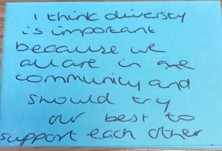 I think diversty
is important
because we
all are in one
community and
should try
our best to
support each other